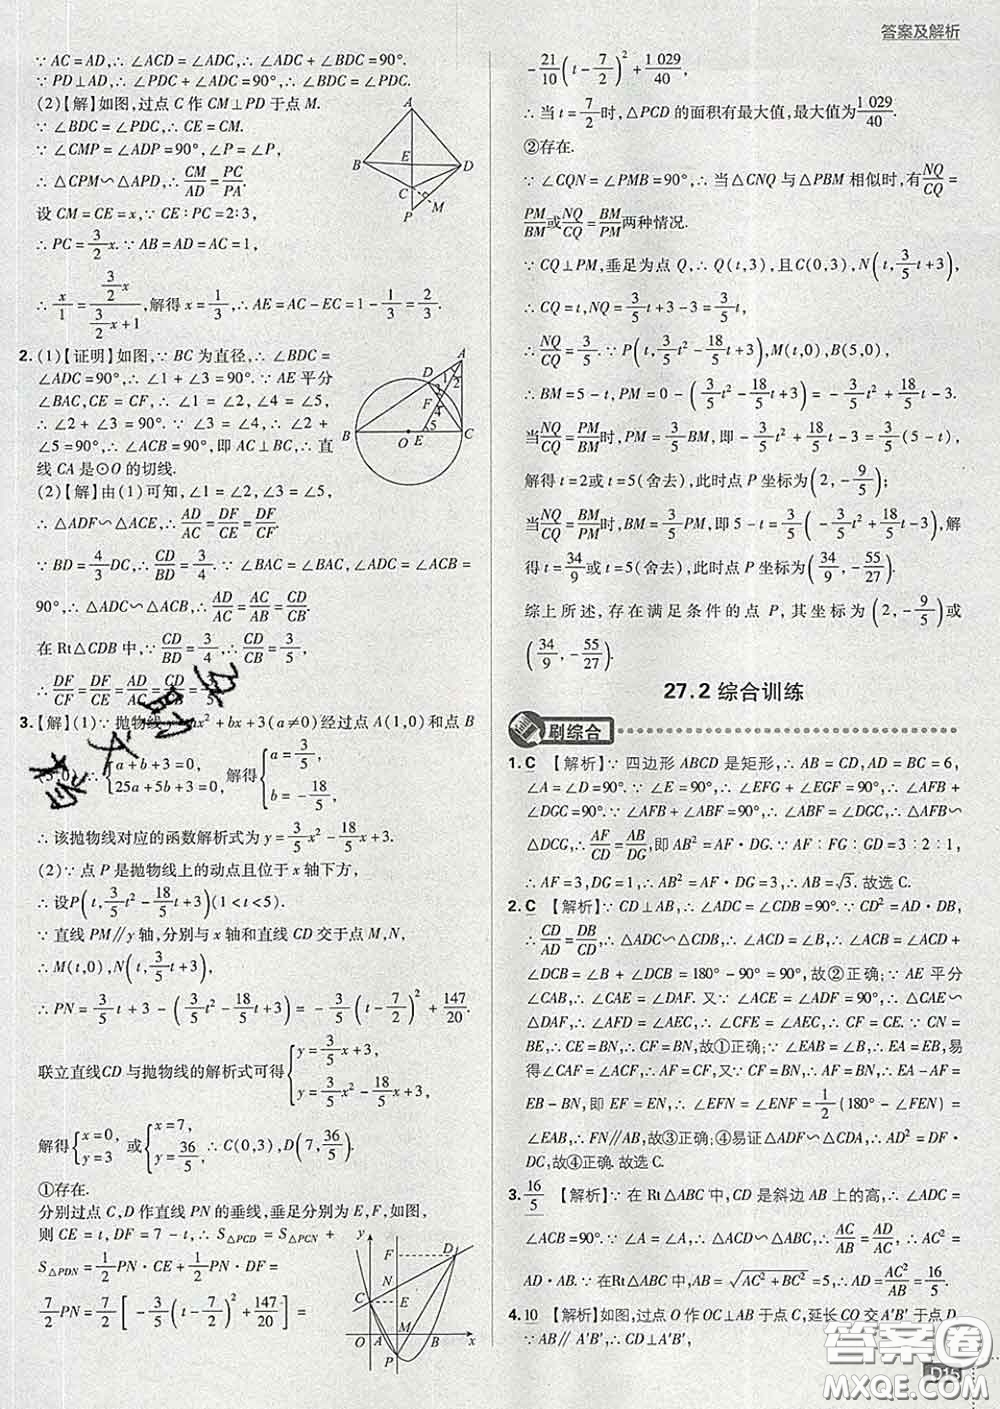 答案及解析
∵ AC = AD,∴ ∠ACD = ∠ADC,∴ ∠ADC + ∠BDC = 90°.
∵ PD⊥AD,∴ ∠PDC + ∠ADC = 90°,∴ ∠PDC = ∠BDC.
(2)【解】如图,过点 C 作 CM⊥PD 于点 M.
∵ ∠BDC = ∠PDC,∴ CE = CM.
∵ ∠CMP = ∠ADP = 90°,∠P = ∠P,
∴ △CPM∽△APD,∴ CM/AD = PC/PA.
设 CM = CE = x,∵ CE∶PC = 2∶3,
∴ PC = 3/2 x. ∵ AB = AD = AC = 1,
∴ x/1 = (3/2 x)/(3/2 x + 1),解得 x = 1/3,∴ AE = AC − EC = 1 − 1/3 = 2/3.
A
B
E
D
C
M
P
2. (1)【证明】如图,∵ BC 为直径,∴ ∠BDC =
∠ADC = 90°,∴ ∠1 + ∠3 = 90°. ∵ AE 平分
∠BAC,CE = CF,∴ ∠1 = ∠2,∠4 = ∠5,
∴ ∠2 + ∠3 = 90°. ∵ ∠3 = ∠4,∴ ∠2 +
∠5 = 90°,∴ ∠ACB = 90°,即 AC⊥BC,∴ 直
线 CA 是⊙O 的切线.
(2)【解】由(1)可知,∠1 = ∠2,∠3 = ∠5,
∴ △ADF∽△ACE,∴ AD/AC = DF/CE = DF/CF.
∵ BD = 4/3 DC,∴ CD/BD = 3/4. ∵ ∠BAC = ∠BAC,∠ADC = ∠ACB =
90°,∴ △ADC∽△ACB,∴ AD/AC = AC/AB = CD/CB.
在 Rt△CDB 中,∵ CD/BD = 3/4,∴ CD/CB = 3/5,
∴ DF/CF = DF/CE = AD/AC = CD/CB = 3/5.
A
D
1
2
3
F
4
5
B
O
E
C
3.【解】(1)∵ 抛物线 y = ax² + bx + 3(a≠0)经过点 A(1,0)和点 B
(5,0),∴ { a + b + 3 = 0, 25a + 5b + 3 = 0, 解得 { a = 3/5, b = −18/5,
∴ 该抛物线对应的函数解析式为 y = 3/5 x² − 18/5 x + 3.
(2)∵ 点 P 是抛物线上的动点且位于 x 轴下方,
∴ 设P(t, 3/5 t² − 18/5 t + 3)(1 < t < 5).
∵ 直线 PM∥y 轴,分别与 x 轴和直线 CD 交于点 M,N,
∴ M(t,0),N(t, 3/5 t + 3),
∴ PN = 3/5 t + 3 − (3/5 t² − 18/5 t + 3) = −3/5 (t − 7/2)² + 147/20.
联立直线CD 与抛物线的解析式可得 { y = 3/5 x + 3, y = 3/5 x² − 18/5 x + 3,
解得 { x = 0, y = 3 或 { x = 7, y = 36/5, ∴ C(0,3),D(7, 36/5).
①存在.
分别过点 C,D 作直线 PN 的垂线,垂足分别为 E,F,如图,
则 CE = t,DF = 7 − t,∴ S△PCD = S△PCN +
S△PDN = 1/2 PN·CE + 1/2 PN·DF =
7/2 PN = 7/2 [ −3/5 (t − 7/2)² + 147/20 ] =
y
F
D
N
C
E
O
A
M
B
x
P
−21/10 (t − 7/2)² + 1 029/40,
∴ 当 t = 7/2 时,△PCD 的面积有最大值,最大值为 1 029/40.
②存在.
∵ ∠CQN = ∠PMB = 90°,∴ 当△CNQ 与△PBM 相似时,有 NQ/CQ =
PM/BM 或 NQ/CQ = BM/PM 两种情况.
∵ CQ⊥PM,垂足为点 Q,∴ Q(t,3),且 C(0,3),N(t, 3/5 t + 3),
∴ CQ = t,NQ = 3/5 t + 3 − 3 = 3/5 t,
∴ NQ/CQ = 3/5. ∵ P(t, 3/5 t² − 18/5 t + 3),M(t,0),B(5,0),
∴ BM = 5 − t,PM = 0 − (3/5 t² − 18/5 t + 3) = −3/5 t² + 18/5 t − 3.
当 NQ/CQ = PM/BM 时,PM = 3/5 BM,即 −3/5 t² + 18/5 t − 3 = 3/5 (5 − t),
解得 t = 2 或 t = 5(舍去),此时点 P 坐标为(2, −9/5);
当 NQ/CQ = BM/PM 时,BM = 3/5 PM,即 5 − t = 3/5 (−3/5 t² + 18/5 t − 3),解
得 t = 34/9 或 t = 5(舍去),此时点 P 坐标为(34/9, −55/27).
综上所述,存在满足条件的点 P,其坐标为(2, −9/5)或
(34/9, −55/27).
27.2 综合训练
刷综合
1. C 【解析】∵ 四边形 ABCD 是矩形,∴ AB = CD,AD = BC = 6,
∠A = ∠D = 90°. ∵ ∠E = 90°,∴ ∠EFG + ∠EGF = 90°,∴ ∠AFB
+ ∠DGC = 90°. ∵ ∠AFB + ∠ABF = 90°,∴ ∠ABF = ∠DGC,∴ △AFB∽
△DCG,∴ AF/CD = AB/DG,即 AB² = AF·DG. ∵ AF∶FG∶GD = 3∶2∶1,
∴ AF = 3,DG = 1,∴ AB² = AF·DG = 3,∴ AB = √3. 故选 C.
2. C 【解析】∵ CD⊥AB,∴ ∠ADC = ∠CDB = 90°. ∵ CD² = AD·DB,
∴ CD/AD = DB/CD,∴ △ADC∽△CDB,∴ ∠ACD = ∠B,∴ ∠ACD +
∠DCB = ∠B + ∠DCB = 180° − 90° = 90°,故②正确;∵ AE 平分
∠CAB,∴ ∠CAE = ∠DAF. 又∵ ∠ACE = ∠ADF = 90°,∴ △CAE∽
△DAF,∴ ∠AFD = ∠AEC,∴ ∠CFE = ∠AEC,∴ CF = CE. ∵ CN =
BE,∴ CE = BN,∴ CF = BN,故①正确;∵ ∠EAB = ∠B,∴ EA = EB,易
得∠CAF = ∠ACF,∴ AF = CF,∴ AF = CF = BN,∴ EA − AF =
EB − BN,即 EF = EN,∴ ∠EFN = ∠ENF = 1/2 (180° − ∠AEN) =
∠EAB,∴ FN∥AB,故③正确;④易证△ADF∽△CDA,∴ AD² = DF·
DC,故④正确. 故选 C.
3. 16/5 【解析】∵ 在 Rt△ABC 中,CD 是斜边 AB 上的高,∴ ∠ADC =
∠ACB = 90°. ∵ ∠CAB = ∠DAC,∴ △ABC∽△ACD,∴ AC/AB = AD/AC,∴ AC² =
AD·AB. ∵ 在Rt△ABC 中,AB = √(AC² + BC²) = 5,∴ AD = AC²/AB = 16/5.
4. 10 【解析】如图,过点 O 作 OC⊥AB 于点 C,延长 CO 交 A′B′ 于点 D.
∵ AB∥A′B′,∴ CD⊥A′B′,
D15
答案圈
MXQE.COM